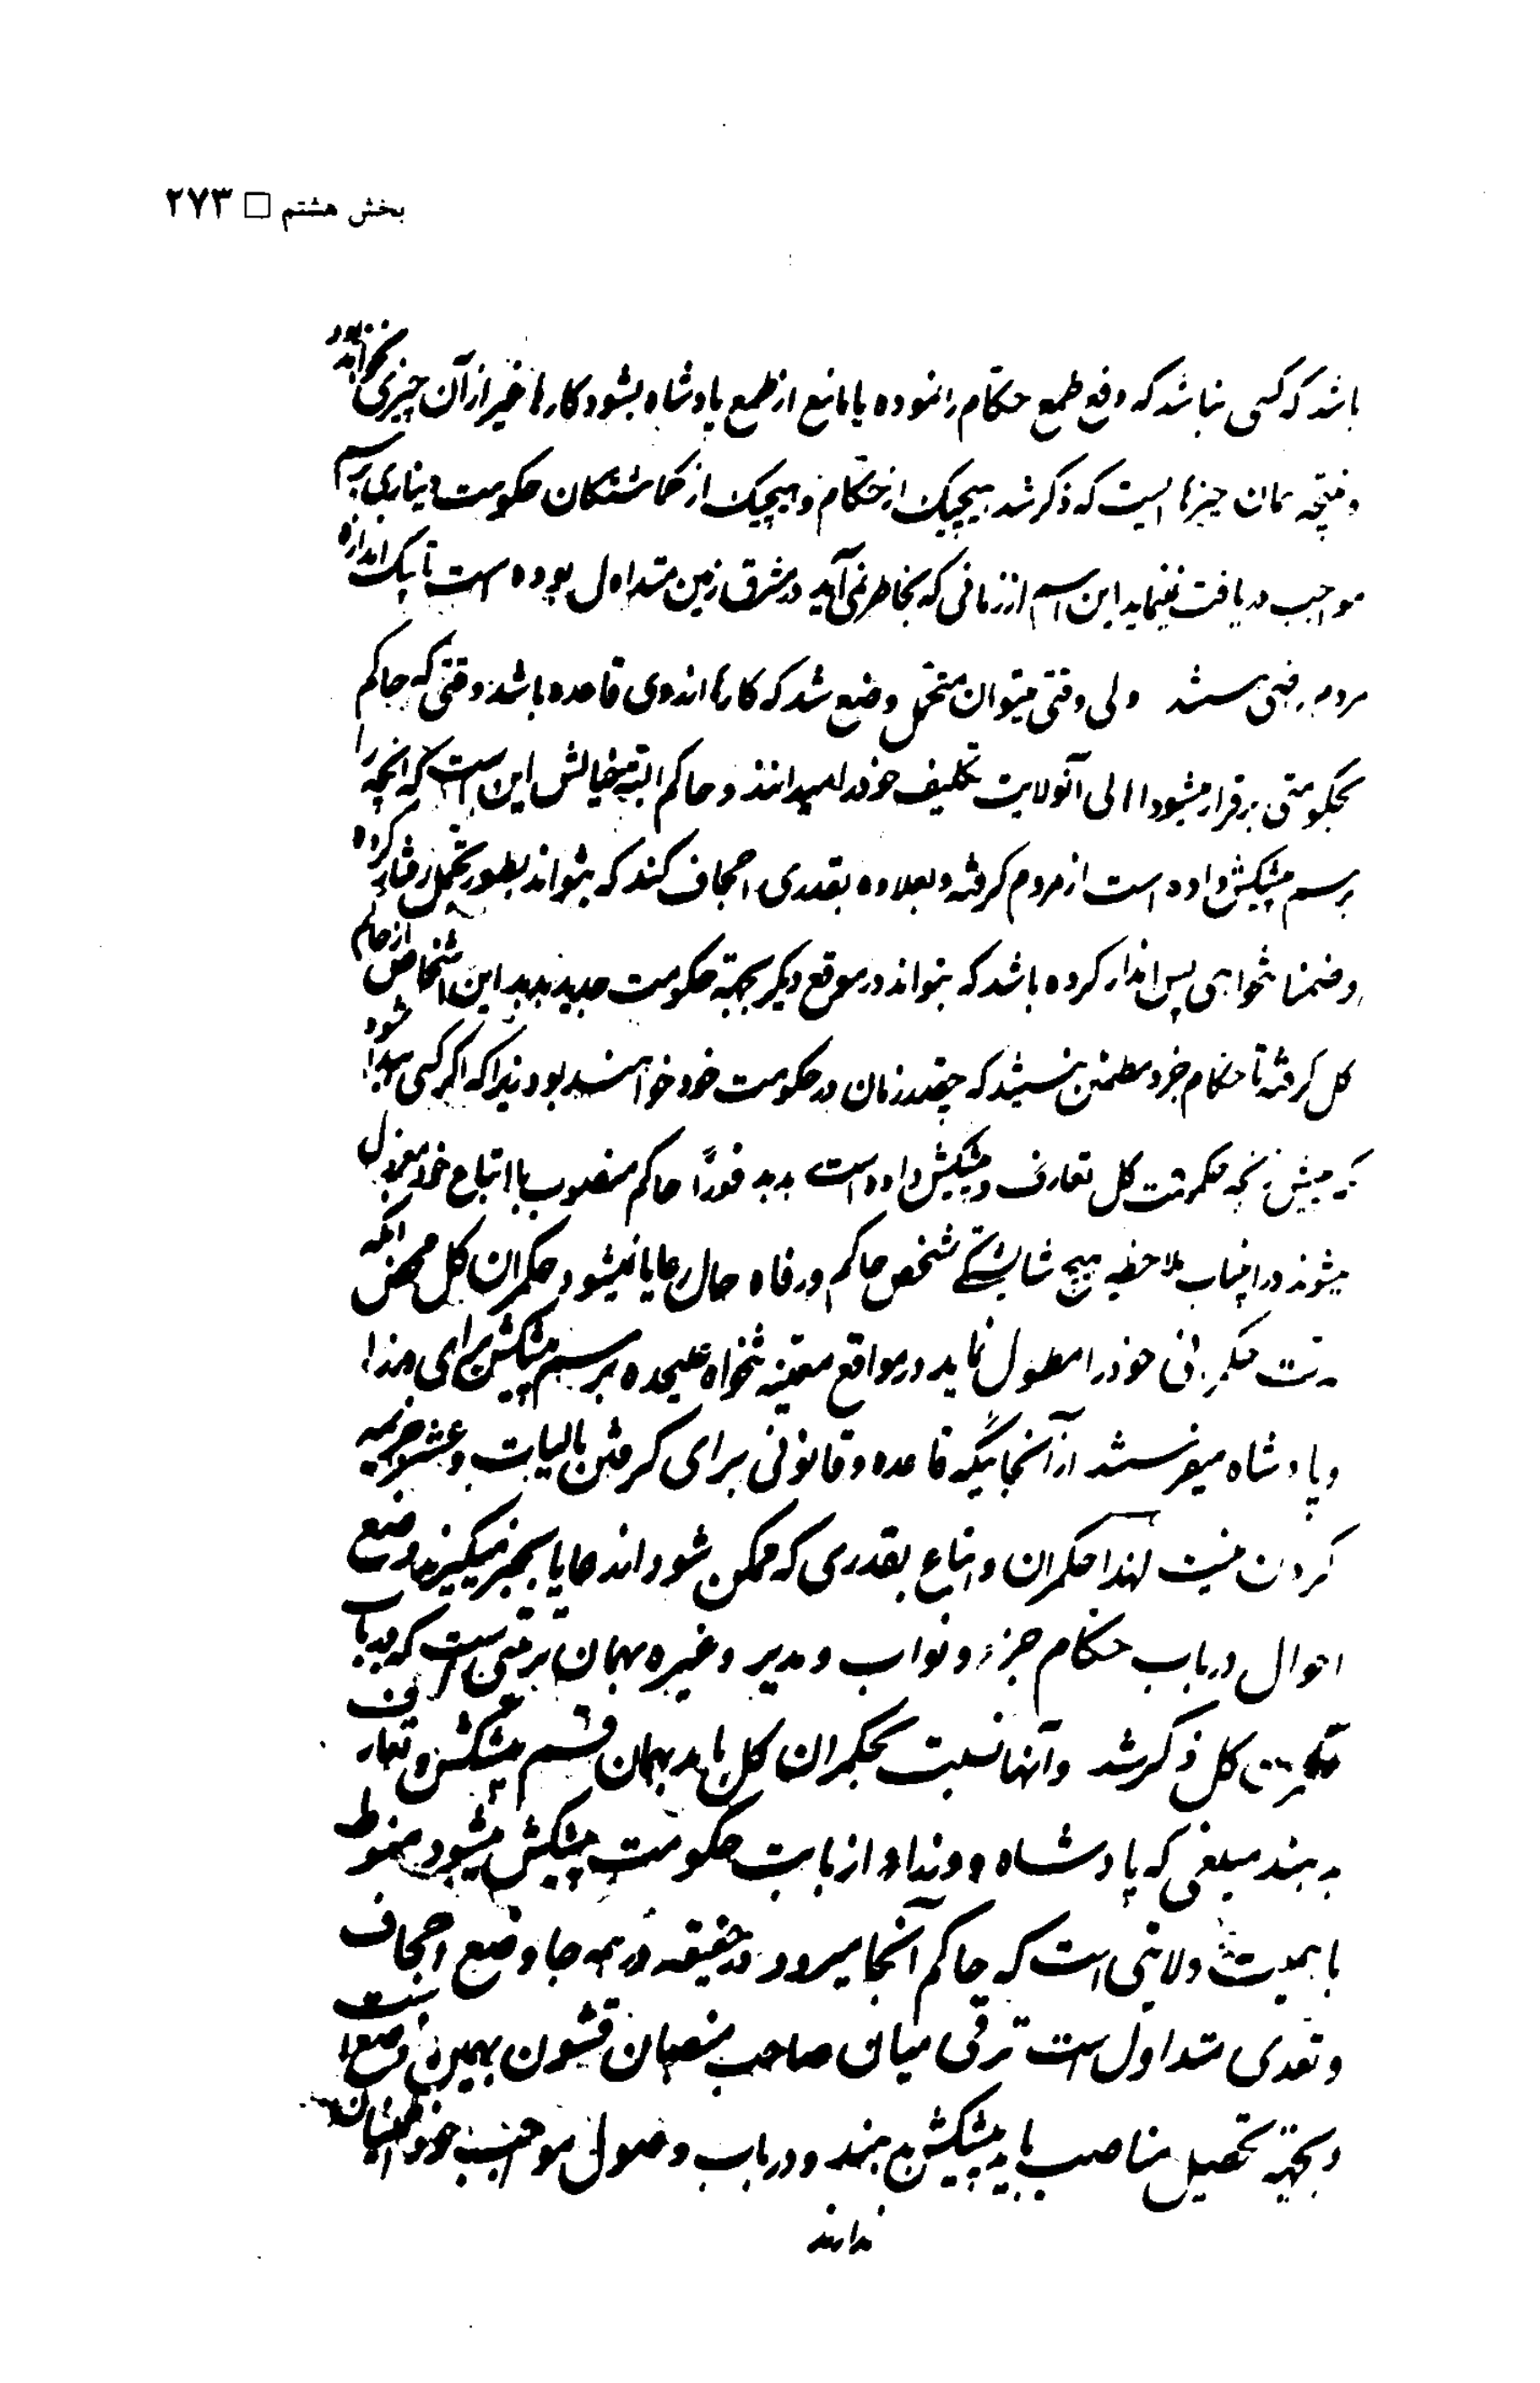 بخش هشتم □ ۲۷۳
باشد که کسی نباشد که دفع طمع حکام را نموده یا مانع از طمع پادشاه بشود کارها خیر از آن چیزی نخواهد بود
و نتیجه همان چیزها ایست که ذکر شد هیچیک از حکام و هیچیک از گماشتگان حکومت دیناری برسم
مواجب دریافت نمینماید این رسم از زمانی که بخاطر نمی‌آید در مشرق زمین متداول بوده است تا یک اندازه
مردم راضی هستند ولی وقتی میتوان متحمل وضع شد که کارها از روی قاعده باشد وقتی که حاکم
بحکومتی برقرار میشود اهالی آنولایت تکلیف خود را میدانند و حاکم البته خیالش این است که آنچه را
برسم پیشکش داده است از مردم گرفته و بعلاوه بقدری اجحاف کند که بتواند بطور تجمل رفتار کرده
و ضمناً تنخواهی پس انداز کرده باشد که بتواند در موقع دیگر بجهة حکومت جدید بدهد این اشخاص از حاکم
کل گرفته تا حکام جزء مطمئن نیستند که چقدر زمان در حکومت خود خواهند بود زیرا که اگر کسی پیدا شود
که بیش از آنچه حکومت کل تعارف و پیشکش داده است بدهد فوراً حاکم منصوب با اتباع خود معزول
میشوند در اینباب ملاحظه هیچ شایستگی شخص حاکم و رفاه حال رعایا نمیشود حکمران کل محض آنکه
مدت حکمرانی خود را مطول نماید در مواقع معینه تنخواه علیحده برسم پیشکش برای وزرا
و پادشاه میفرستد از آنجائیکه قاعده و قانونی برای گرفتن مالیات و عشر و جریمه
کردن نیست لهذا حکمران و اتباع بقدری که ممکن شود از رعایا بجبر میگیرند وضع
احوال در باب حکام جزء و نواب و مدیر و غیره بهمان ترتیبی است که در باب
حکومت کل ذکر شد و آنها نسبت بحکمران کل باید بهمان قسم پیشکش و تعارف
بدهند مبلغی که پادشاه و وزراء از بابت حکومت پیشکش میشود منوط
باهمیت ولایتی است که حاکم آنجا میرود در حقیقه در همه جا وضع اجحاف
و تعدی متداول است ترقی میان صاحب منصبان قشون بهمین وضع است
و بجهة تحصیل مناصب باید پیشکش بدهند و در باب وصول مواجب خود اطمینان
ندارند